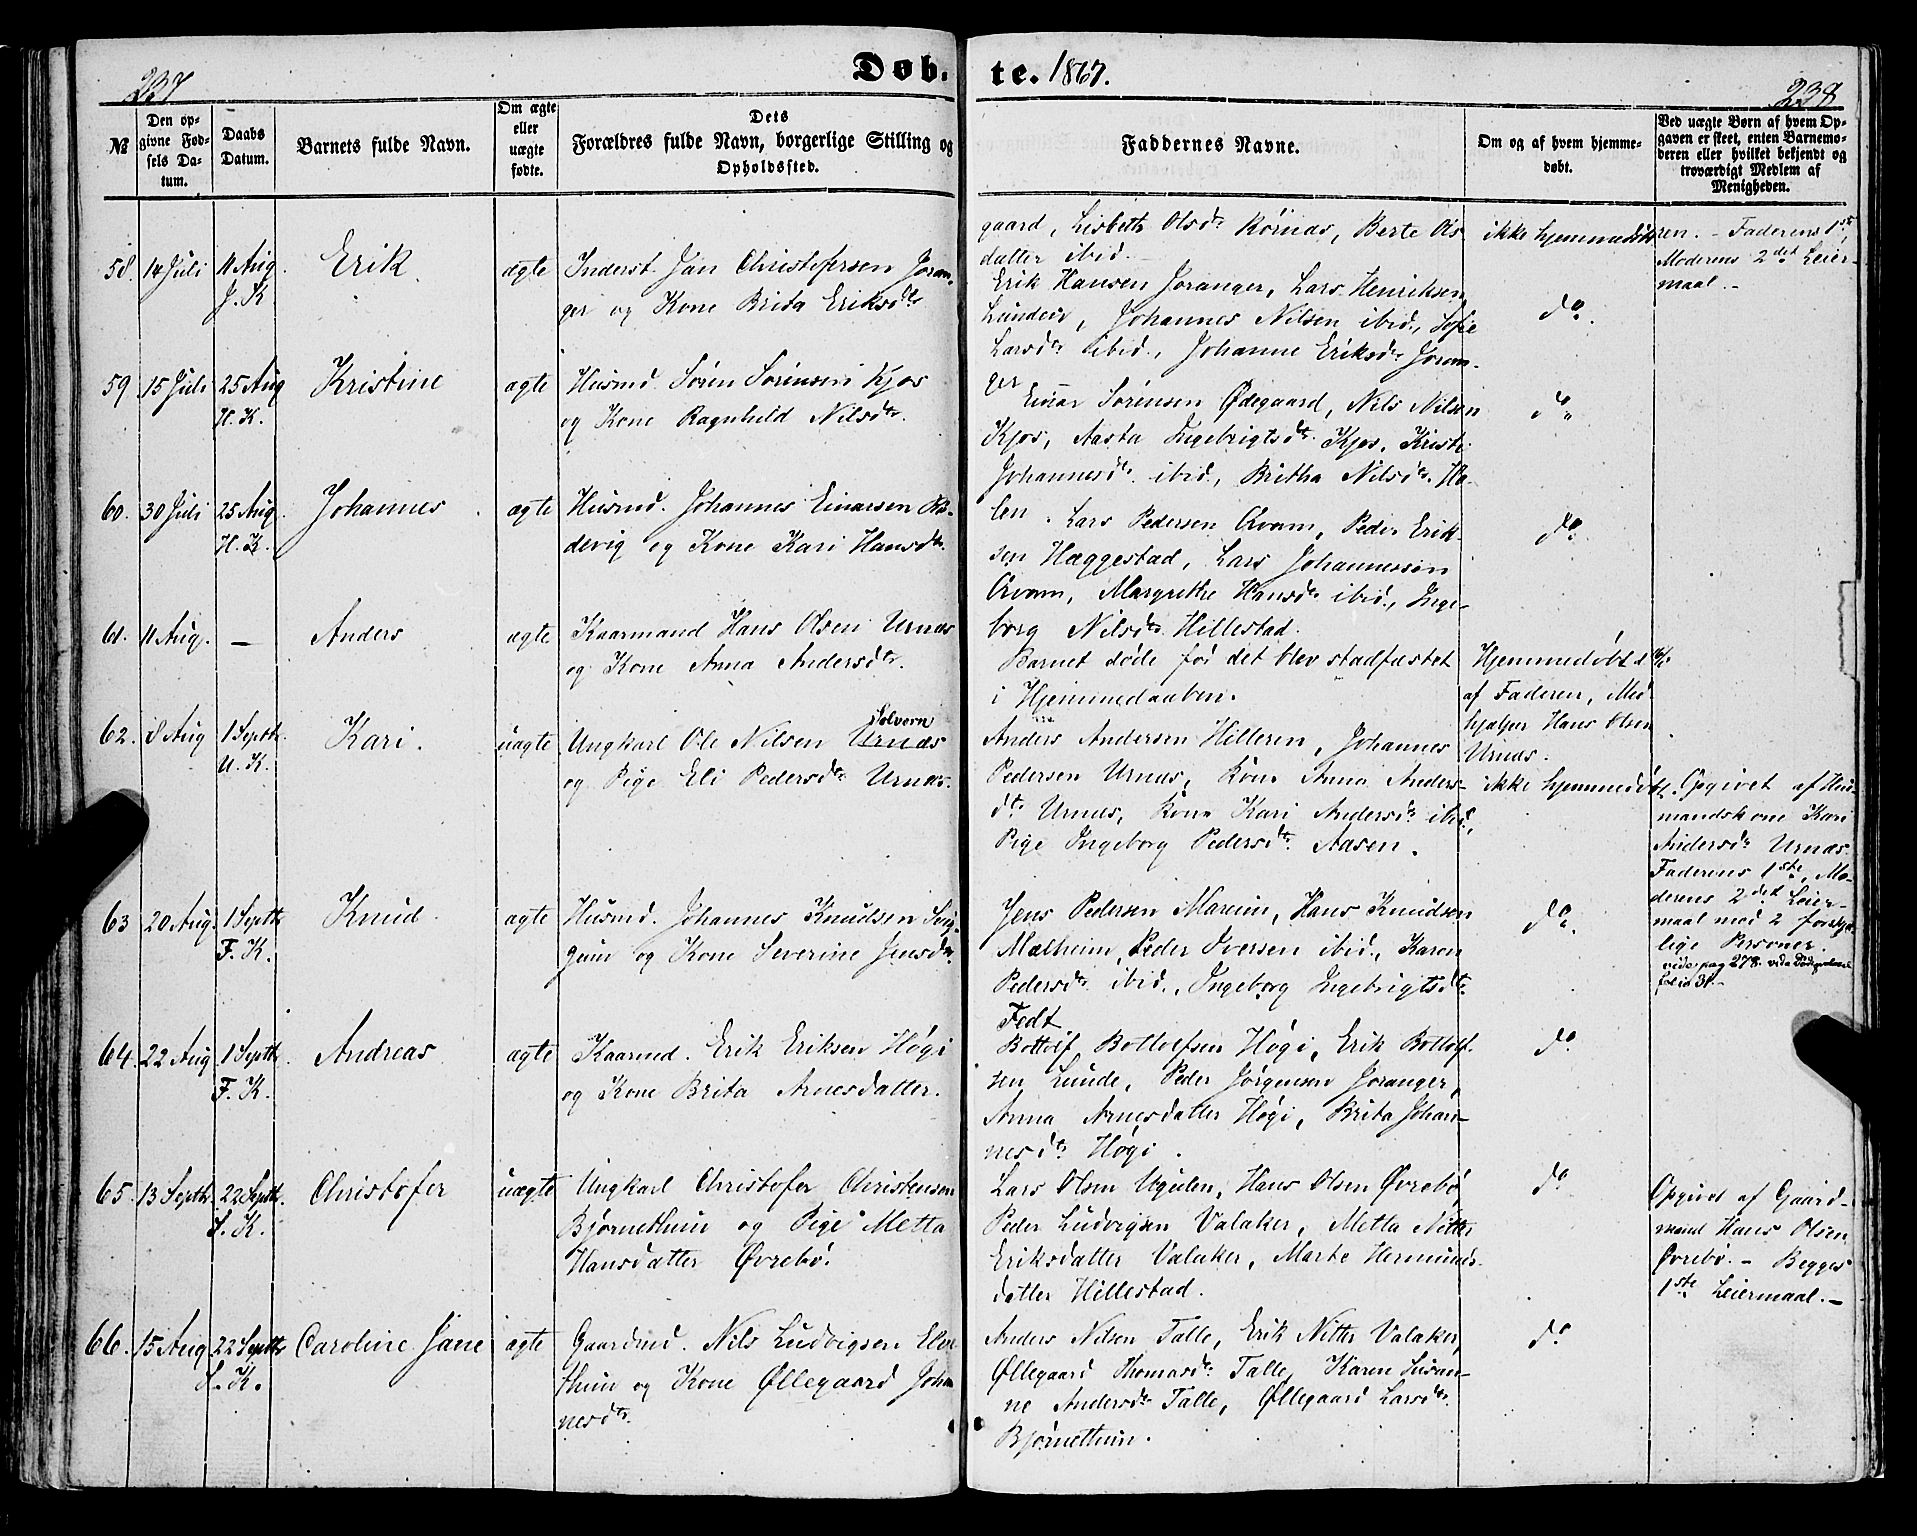 237
Døb-te. 1867.
238
№
Den opgivne Fødsels Datum.
Daabs Datum.
Barnets fulde Navn.
Om ægte eller uægte fødte.
Dets Forældres fulde Navn, borgerlige Stilling og Opholdssted.
Faddernes Navne.
Om og af hvem hjemmedøbt.
Ved uægte Børn af hvem Opgaven er skeet, enten Barnemoderen eller hvilket bekjendt og troværdigt Medlem af Menigheden.
gaard, Lisbeth Olsdr Rörnæs, Berte Ols
datter ibid.
ikke hjemmedöbt
ren. - Faderens 1ste
Moderens 2det Leier-
maal. -
58. 14 Juli 11 Aug. Erik ægte Inderst Jan Christofersen Joran-
J. K ger og Kone Brita Eriksdtr
Erik Hansen Joranger, Lars Henriksen
Lundeiv, Johannes Nilsen ibid., Sofie
Larsdtr ibid., Johanne Eriksdtr Joran-
ger
do.
59 15 Juli 25 Aug Kristine ægte Husmd. Sören Sörensen Kjos
H. K. og Kone Ragnhild Nilsdtr.
Einar Sörensen Ødegaard, Nils Nilsen
Kjos, Aasta Ingebrigtsdtr Kjos, Kristi
Johannesdtr ibid., Britha Nilsdtr. Ha-
len.
do.
60. 30 Juli 25 Aug. Johannes ægte Husmd. Johannes Einarsen Bo-
H. K. devig og Kone Kari Hansdtr.
Lars Pedersen Qvam, Peder Erik-
sen Hæggestad, Lars Johannessen
Qvam, Margrethe Hansdtr ibid., Inge-
borg Nilsdtr Hillestad.
do.
61. 11 Aug. — Anders ægte Kaarmand Hans Olsen Urnæs
og Kone Anna Andersdtr.
Barnet döde för det blev stadfæstet
i Hjemmedaaben.
Hjemmedöbt d
af Faderen, Med
hjælper Hans Olsen
Urnæs.
62. 8 Aug 1 Septb. Kari. uægte Ungkarl Ole Nilsen Urnæs Solvorn
U. K. og Pige Eli Pedersdtr Urnæs.
Anders Andersen Hilleren, Johannes
Pedersen Urnæs, Kone Anna Anders-
dtr Urnæs, Kone Kari Andersdtr ibid.,
Pige Ingeborg Pedersdtr. Aasen.
ikke hjemmedöbt.
Opgivet af Hus-
mandskone Kari
Andersdtr Urnæs.
Faderens 1ste, Mo-
derens 2det Leier-
maal med 2 forskjæl-
lige Personer.
vide pag 278. vide Dödpalmed
folio 31.-
63 20 Aug. 1 Septb Knud. ægte Husmd. Johannes Knudsen Svig-
F. K. gum og Kone Severine Jensdtr.
Jens Pedersen Mareim, Hans Knudsen
Mælheim, Peder Iversen ibid., Karen
Pedersdtr ibid., Ingeborg Ingebrigtsdtr
Fedt
do.
64. 22 Aug 1 Septb. Andreas ægte Kaarmd. Erik Eriksen Høgi
F. K. og Kone Brita Arnesdatter.
Bottolf Bottolfsen Høgi, Erik Bottolf-
sen Lunde, Peder Jörgensen Joranger,
Anna Arnesdatter Høgi, Brita Johan-
nesdtr Høgi.
do
65. 13 Septb. 22 Septb. Christofer uægte Ungkarl Christofer Christensen
S. K. Bjørnethun og Pige Metta
Hansdatter Øvrebø.
Lars Olsen Ugulen, Hans Olsen Øvrebø
Peder Ludvigsen Valaker, Metta Nitter
Eriksdatter Valaker, Marte Hermunds-
datter Hillestad.
do
Opgivet af Gaard-
mand Hans Olsen
Øvrebø. - Begges
1ste Leiermaal. -
66. 15 Aug 22 Septb Caroline Jane ægte Gaardmd. Nils Ludvigsen Elve-
S. K. thun og Kone Øllegaard Johan
nesdtr.
Anders Nilsen Talle, Erik Nitter Valaker,
Øllegaard Thomasdtr Talle, Karen Susan-
ne Andersdtr Talle, Øllegaard Larsdtr.
Bjørnethun.
do